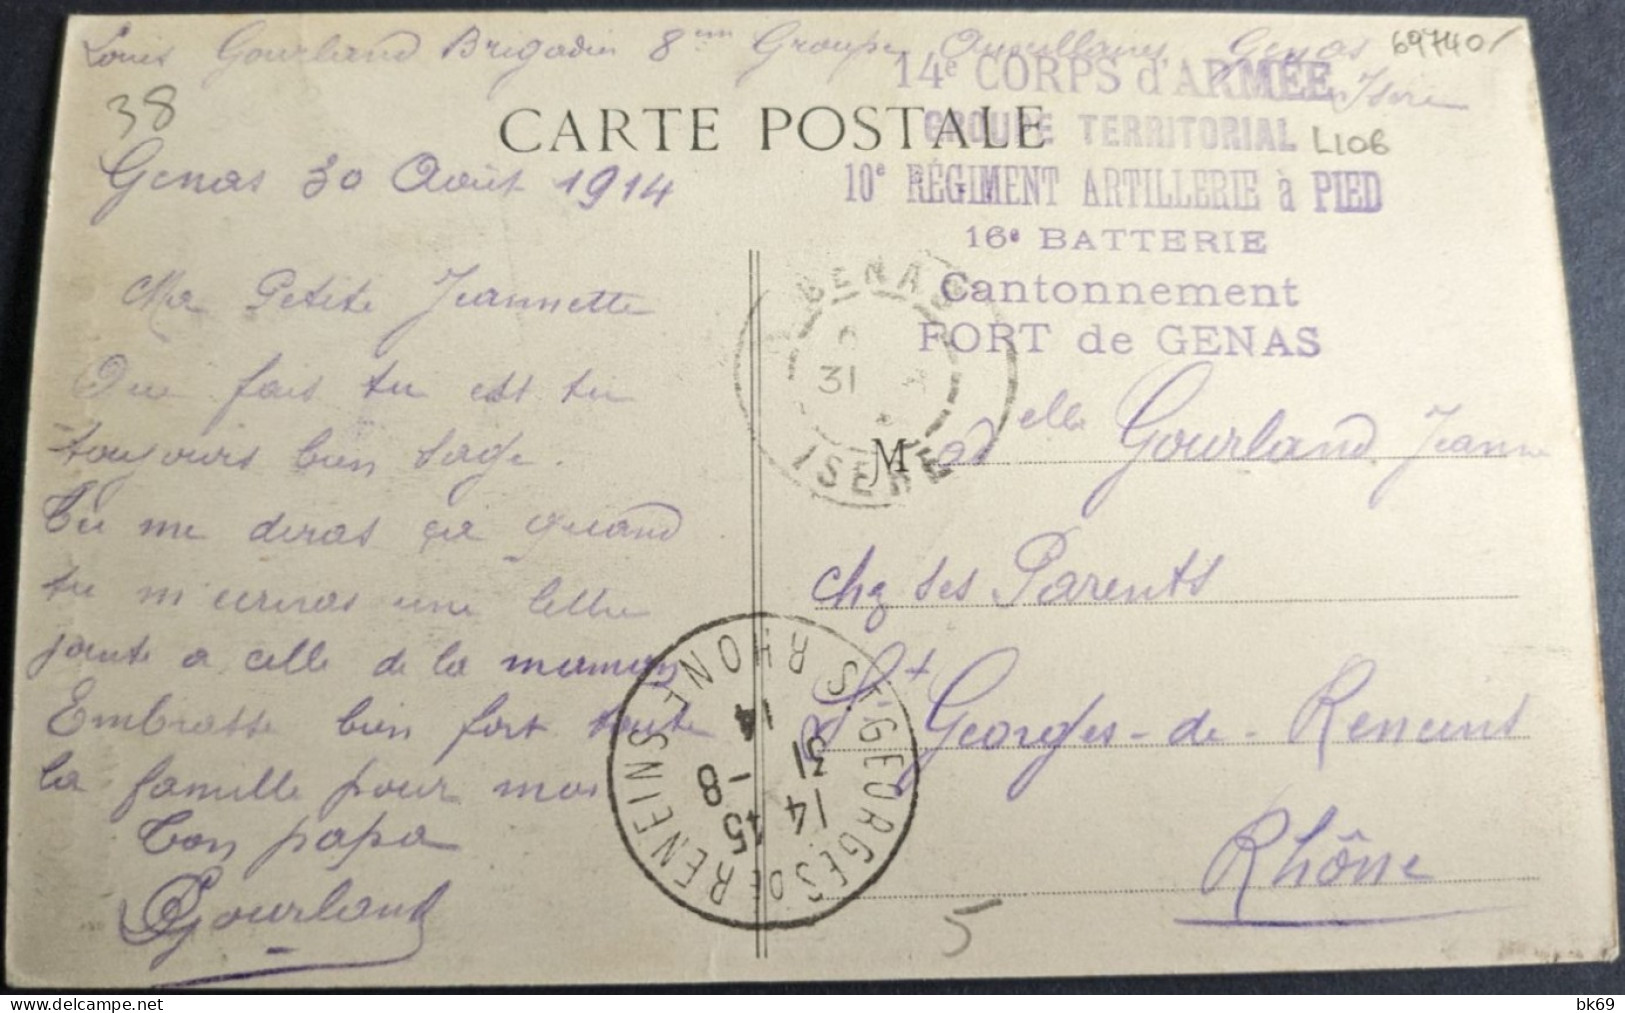 Louis Gourland Brigadier 8em Groupe Genas
Isère
697401
38
L106
CARTE POSTALE
14e CORPS d'ARMÉE
GROUPE TERRITORIAL
10e RÉGIMENT ARTILLERIE à PIED
16e BATTERIE
Cantonnement
FORT de GENAS
GENAS
31
ISERE
Genas 30 Août 1914
Ma Petite Jeannette
Que fais tu est tu
toujours bien sage.
Tu me diras ça quand
tu m'ecriras une lettre
jointe a celle de la maman
Embrasse bien fort toute
la famille pour moi
Ton papa
Gourland
Mad elle Gourland Jeanne
chez ses Parents
St Georges-de-Reneins
Rhône
ST GEORGES DE RENEINS
RHONE
15 14
-8 31
14
5
bk69